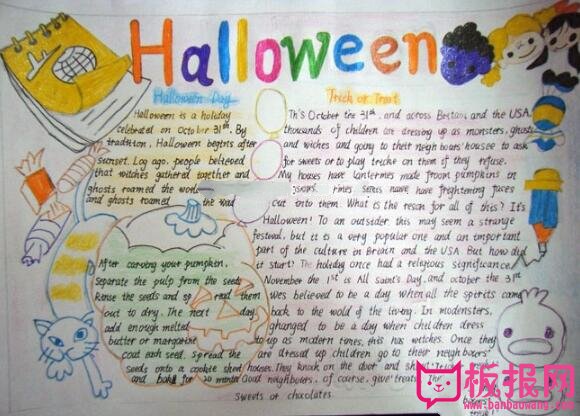 Halloween
Halloween Day
Halloween is a holiday
celebrated on october 31st. By
tradition, Halloween begins after
sunset. Log ago, people believed
that witches gathered together and
ghosts roamed the worl
and ghosts roamed the wad
After carving your pumpkin,
separate the pulp from the seed
Rinse the seeds and sp read them
out to dry. The next day,
add enough melted
butter or margarine
coat each seed. spread the
seeds onto a cookie sheet
and bake for 20 minute
Trick or Treat
Th's October the 31st, and across Britain and the USA
thousands of children are dressing up as monsters, ghosts
and witches and going to their neighbours' housee to ask
for sweets or to play tricke on them if they refuse.
My houses have lanternes made from pumpkins in
have frightening faces
cut into them. What is the reson for all of this? It's
Halloween! To an outsider this may seem a strange
festival, but it is a very popular one and an important
part of the culture in Britain and the USA. But how did
it start? The holiday once had a religious significance
November the 1st is All saint's Day, and october the 31st
wes believed to be a day when all the spirits came
back to the wold of the living. In modensters,
ghanged to be a day when children dress
up as modern times, this has witches. Once they
are dressed up children go to their neighbours'
houses. They knock on the door and sh
Good neighbours, of course, give treats. The
sweets or chocolates.
板报网
www.banbaowang.com